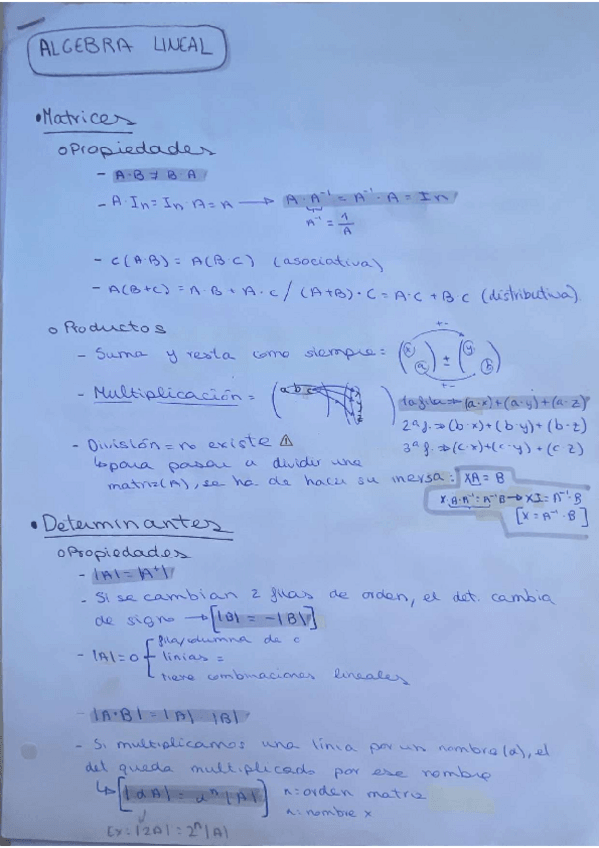 ALGEBRA LINEAL
• Matrices
o Propiedades
- A·B ≠ B·A
- A·In = In·A = A → A·A⁻¹ = A⁻¹·A = In
A⁻¹ = 1/A
- C(A·B) = A(B·C) (asociativa)
- A(B+C) = A·B + A·C / (A+B)·C = A·C + B·C (distributiva)
o Productos
+-
- Suma y resta como siempre: (x a) ± (y b)
+-
- Multiplicación = (a b c) (x y z) 1a fila ⇒ (a·x)+(a·y)+(a·z)
2ª f. ⇒ (b·x)+(b·y)+(b·z)
- División = no existe ⚠ 3ª f. ⇒ (c·x)+(c·y)+(c·z)
↳ para pasar a dividir una
matriz (A), se ha de hacer su inversa: XA = B
X A·A⁻¹ = A⁻¹B → XI = A⁻¹·B
[X = A⁻¹·B]
• Determinantes
o Propiedades
- |A| = |Aᵗ|
- Si se cambian 2 filas de orden, el det. cambia
de signo → [|B| = -|B|]
fila/columna de 0
- |A| = 0 { línias =
tiene combinaciones lineales
- |A·B| = |A| |B|
- Si multiplicamos una línia por un nombre (a), el
det queda multiplicado por ese nombre
↳ [|aA| = aⁿ|A|] n: orden matriz
a: nombre x
Ex: |2A| : 2ⁿ|A|